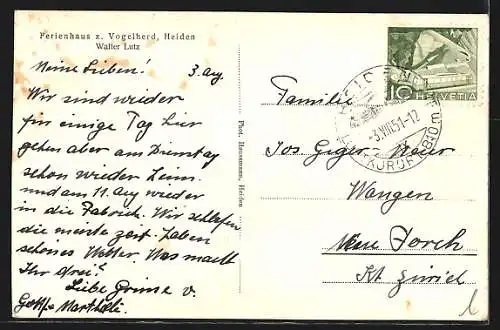 Ferienhaus z. Vogelherd, Heiden
Walter Lutz
3. Aug.
Meine Lieben!
Wir sind wieder
für einige Tag hier
gehen aber am Dienstag
schon wieder heim.
und am 11. Aug wieder
in die Fabrick. Wir schlafen
die meiste Zeit. haben
schönes Wetter. Was macht
Ihr drei?
Liebe Grüsse v.
Phot. Heussmann, Heiden
10
HELVETIA
HEIDEN
-3.VIII.51-12
KURORT 810 m
Familie
Jos Geiger-Meier
Wangen
Forch
Kt Zürich